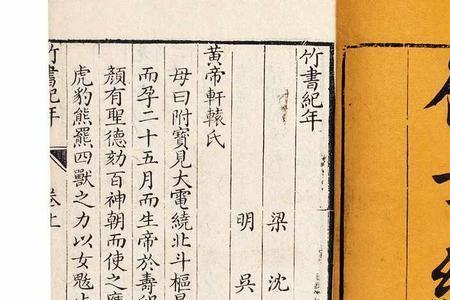 竹書紀年
梁 沈
明 吳
黃帝軒轅氏
母曰附寶見大電繞北斗樞星
而孕二十五月而生帝於壽邱
顏有聖德劾百神朝而使之應
虎豹熊羆四獸之力以女魃止
竹書紀年 卷上